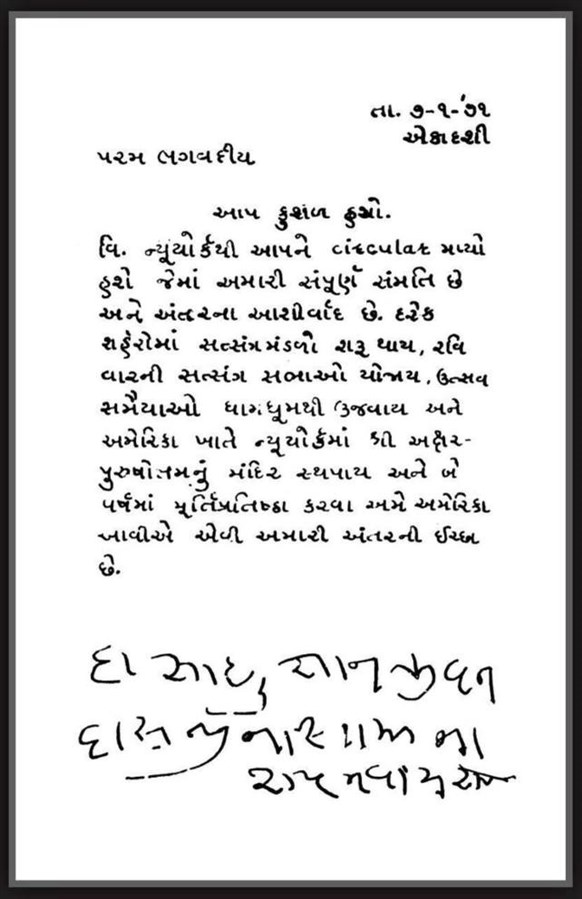 તા. ૭-૧-'૭૧
એકાદશી
પરમ ભગવદીય
આપ કુશળ હશો.
વિ. ન્યૂયોર્કથી આપને મળ્યો
હશે જેમાં અમારી સંપૂર્ણ સંમતિ છે
અને અંતરના આશીર્વાદ છે. દરેક
શહેરોમાં સત્સંગમંડળો શરૂ થાય, રવિ
વારની સત્સંગ સભાઓ યોજાય, ઉત્સવ
સમૈયાઓ ધામધૂમથી ઉજવાય અને
અમેરિકા ખાતે ન્યૂયોર્કમાં શ્રી અક્ષર-
પુરુષોત્તમનું મંદિર સ્થપાય અને બે
વર્ષમાં મૂર્તિપ્રતિષ્ઠા કરવા અમે અમેરિકા
આવીએ એવી અમારી અંતરની ઈચ્છા
છે.
દા સાધુ જ્ઞાનજીવન
દાસજીના